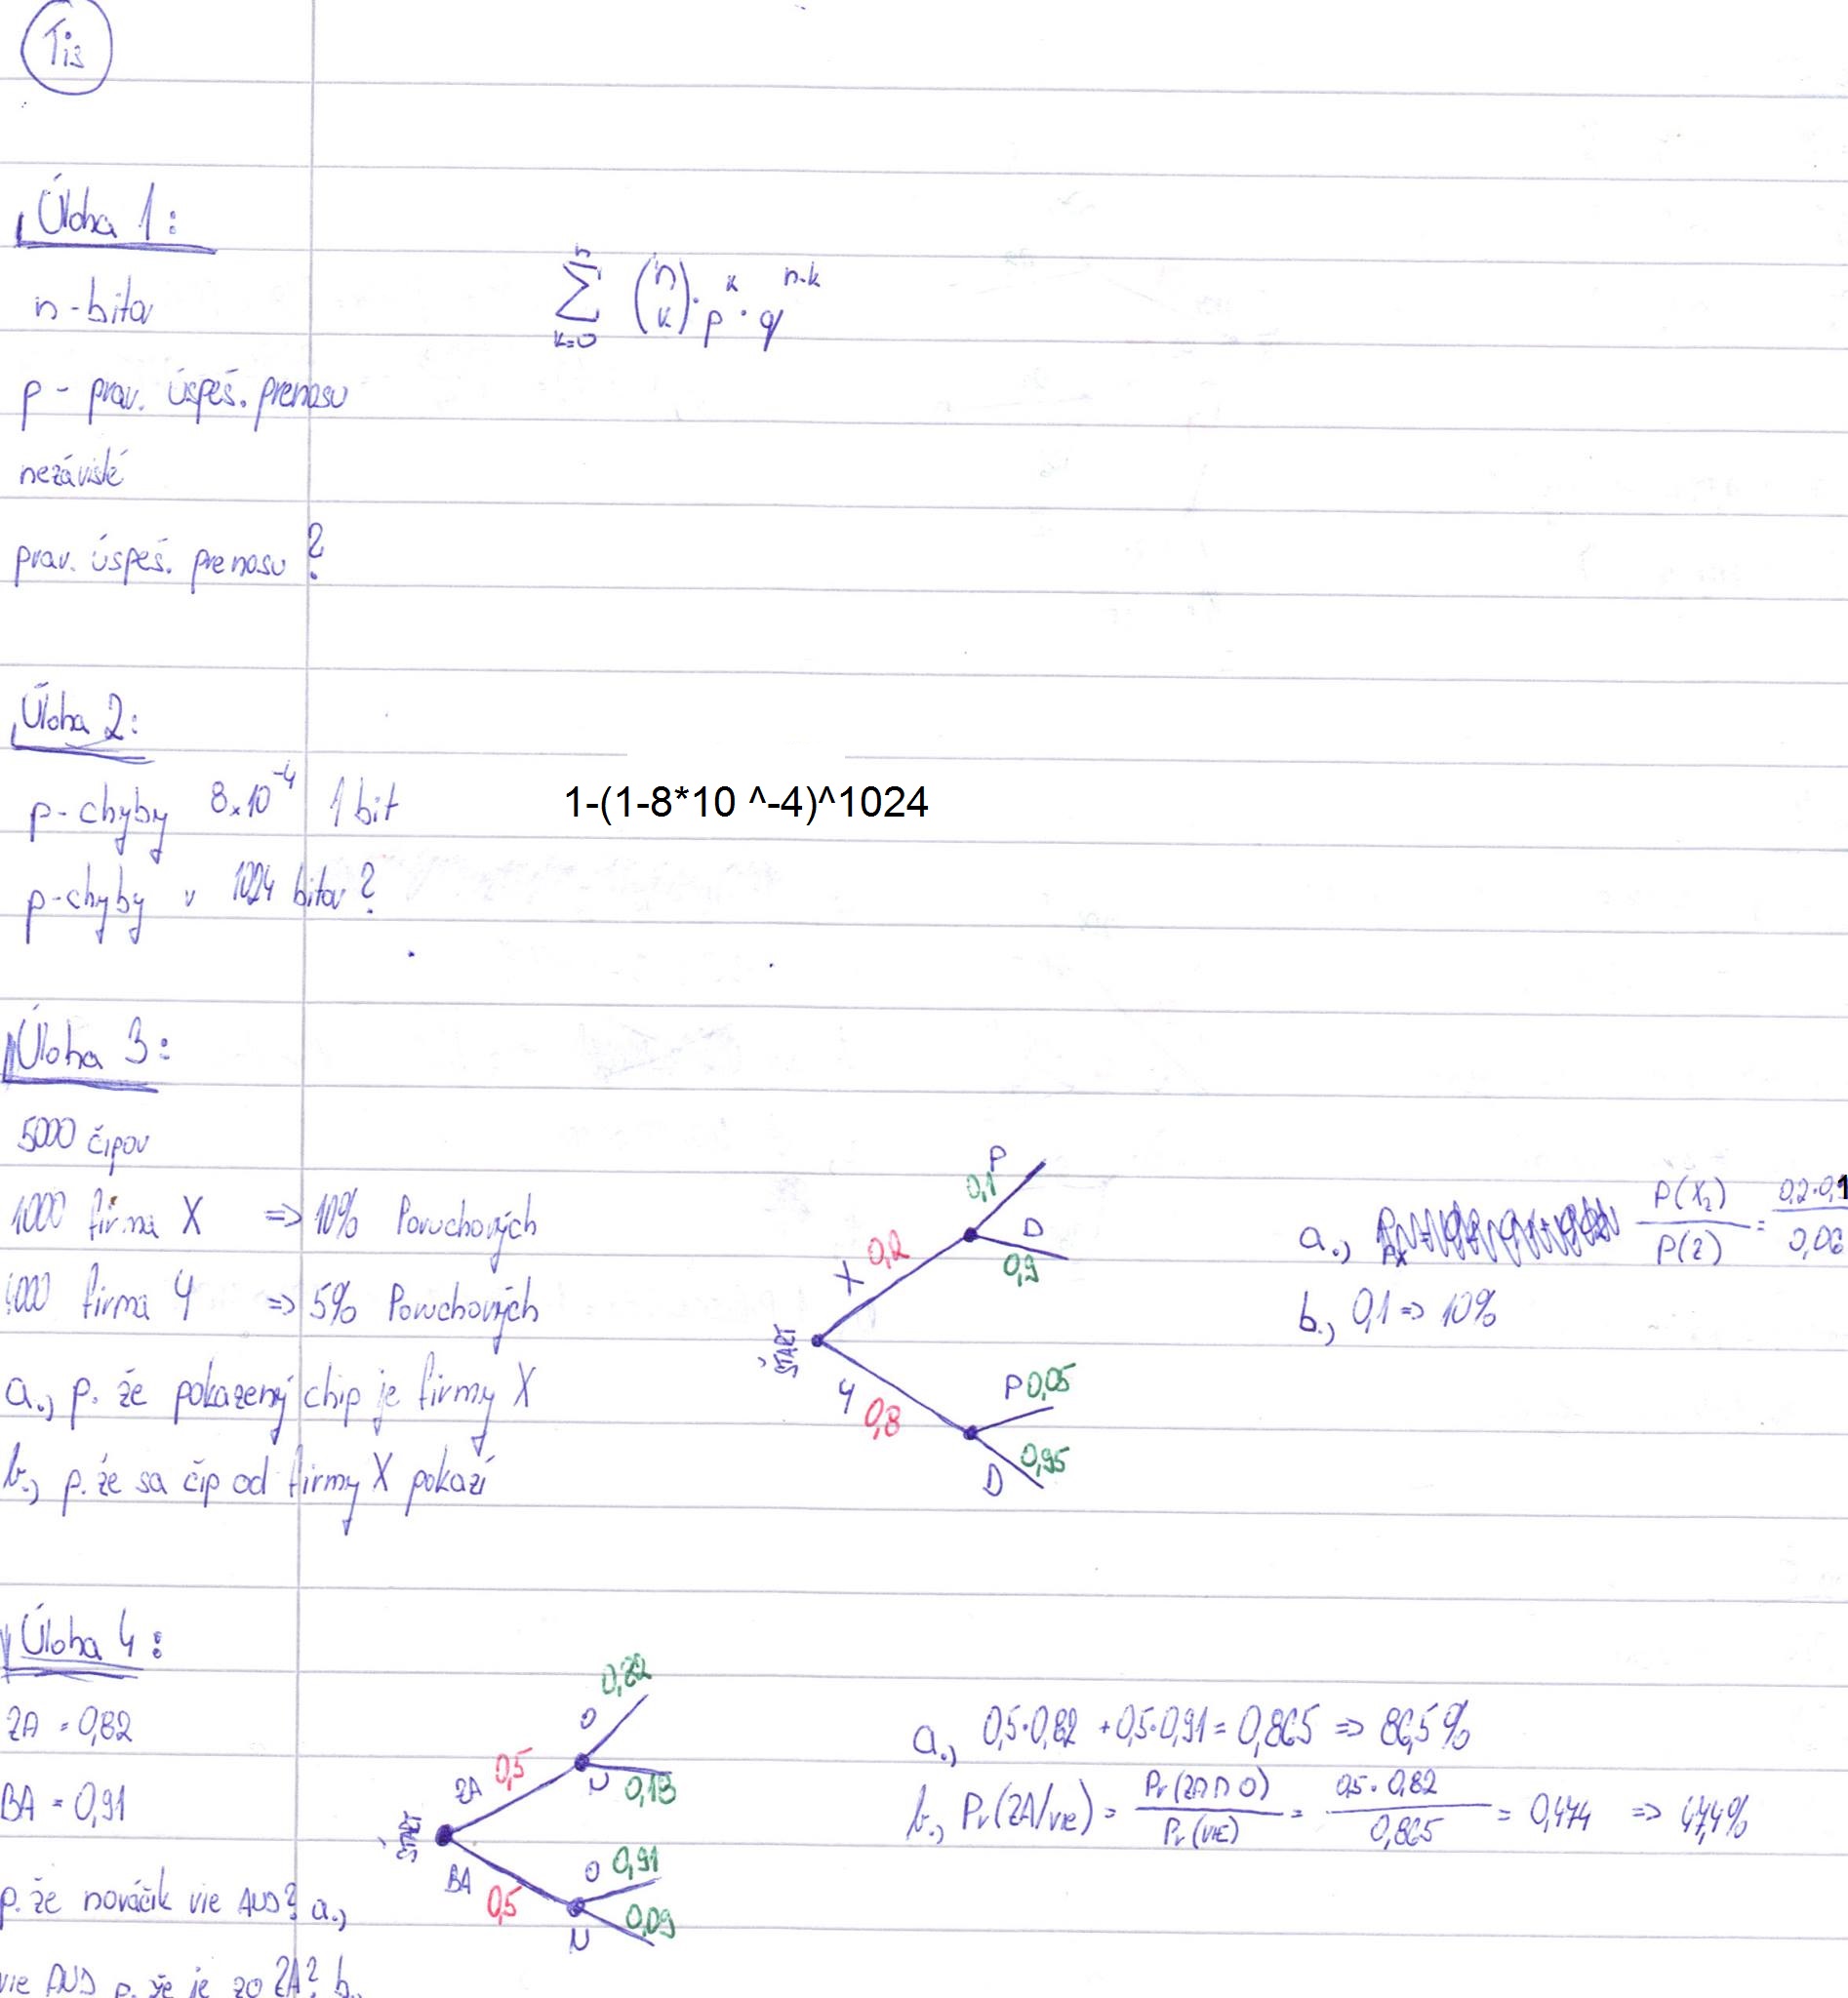 Tis
Úloha 1:
n-bitov
n
∑ (n k) · p^k · q^n-k
k=0
p - prav. úspeš. prenosu
nezávislé
prav. úspeš. prenosu?
Úloha 2:
p-chyby 8x10^-4 1 bit
1-(1-8*10 ^-4)^1024
p-chyby v 1024 bitov?
Úloha 3:
5000 čipov
1000 firma X => 10% Poruchových
4000 firma Y => 5% Poruchových
a., p. že pokazený chip je firmy X
b., p. že sa čip od firmy X pokazí
ŠTART
X 0,2
P 0,1
D 0,9
Y 0,8
P 0,05
D 0,95
a., P(X2) / P(2) = 0,2·0,1 / 0,06
b., 0,1 => 10%
Úloha 4:
ZA = 0,82
BA = 0,91
p. že nováčik vie AUS? a.,
vie AUS p. že je zo ZA? b.
ŠTART
ZA 0,5
O 0,82
N 0,18
BA 0,5
O 0,91
N 0,09
a., 0,5·0,82 + 0,5·0,91 = 0,865 => 86,5%
b., Pr(ZA/vie) = Pr(ZA∩O) / Pr(VIE) = 0,5·0,82 / 0,865 = 0,474 => 47,4%